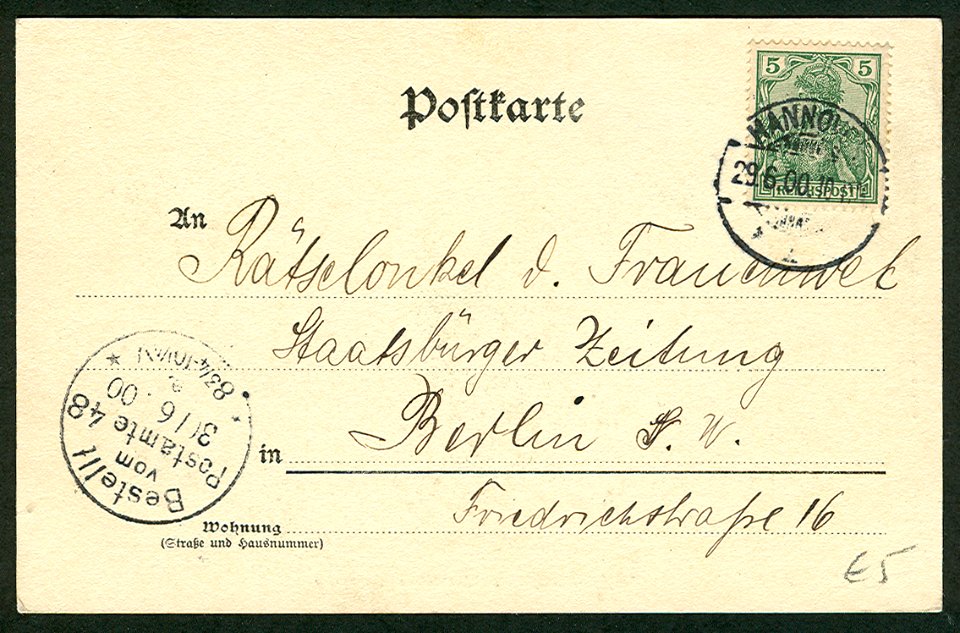 5 5
REICHSPOST
Postkarte
HANNOV
29.6.00.10
An Rätselonkel d. Frauenwelt
Staatsbürger Zeitung
in Berlin S. W.
Friedrichstraße 16
Wohnung
(Straße und Hausnummer)
Bestellt
vom
Postamte 48
30/6.00
8¾-10¼V
E5